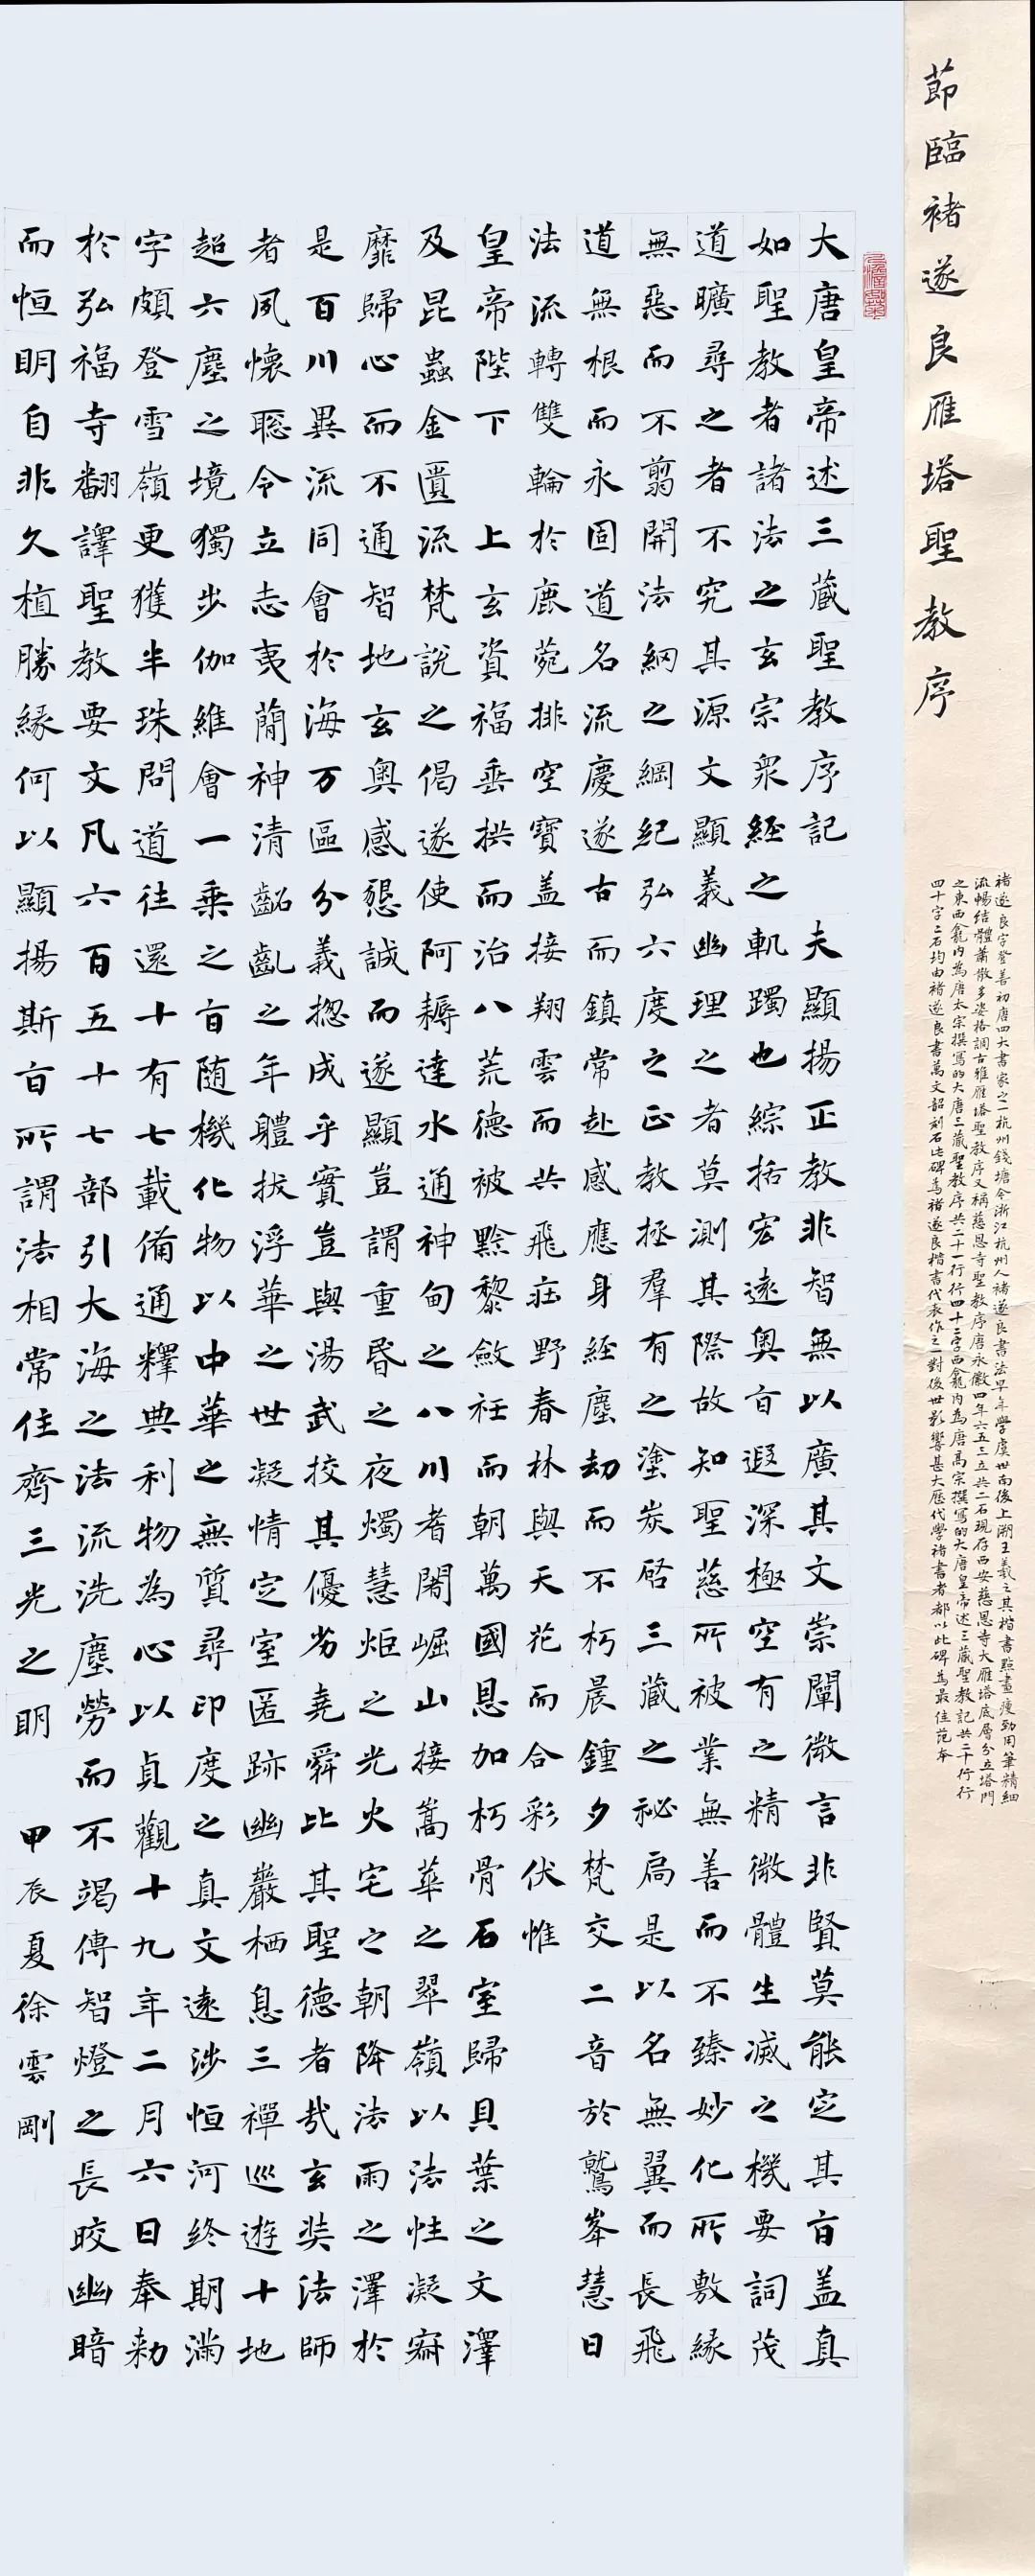 節臨褚遂良雁塔聖教序
褚遂良字登善初唐四大書家之一杭州錢塘今浙江杭州人褚遂良書法早年學虞世南後上溯王羲之其楷書點畫瘦勁用筆精細
流暢結體蕭散多姿格調古雅雁塔聖教序又稱慈恩寺聖教序唐永徽四年六五三立共二石現存西安慈恩寺大雁塔底層分立塔門
之東西龕内為唐太宗撰寫的大唐三藏聖教序共二十一行行四十二字西龕内為唐高宗撰寫的大唐皇帝述三藏聖教記共二十行行
四十字二石均由褚遂良書萬文韶刻石此碑為褚遂良楷書代表作之一對後世影響甚大歷代學褚書者都以此碑為最佳范本
大唐皇帝述三藏聖教序記 夫顯揚正教非智無以廣其文崇闡微言非賢莫能定其旨盖真
如聖教者諸法之玄宗眾經之軌躅也綜括宏遠奧旨遐深極空有之精微體生滅之機要詞茂
道曠尋之者不究其源文顯義幽理之者莫測其際故知聖慈所被業無善而不臻妙化所敷緣
無惡而不翦開法網之綱紀弘六度之正教拯羣有之塗炭啓三藏之祕扃是以名無翼而長飛
道無根而永固道名流慶遂古而鎮常赴感應身經塵劫而不朽晨鍾夕梵交二音於鷲峯慧日
法流轉雙輪於鹿菀排空寶盖接翔雲而共飛莊野春林與天花而合彩伏惟
皇帝陛下 上玄資福垂拱而治八荒德被黔黎斂衽而朝萬國恩加朽骨石室歸貝葉之文澤
及昆蟲金匱流梵說之偈遂使阿耨達水通神甸之八川耆闍崛山接嵩華之翠嶺以法性凝寂
靡歸心而不通智地玄奧感懇誠而遂顯豈謂重昏之夜燭慧炬之光火宅之朝降法雨之澤於
是百川異流同會於海万區分義揔成乎實豈與湯武挍其優劣堯舜比其聖德者哉玄奘法師
者夙懷聡令立志夷簡神清齠齓之年體拔浮華之世凝情定室匿跡幽巖栖息三禪巡遊十地
超六塵之境獨步伽維會一乘之旨随機化物以中華之無質尋印度之真文遠涉恒河終期滿
字頗登雪嶺更獲半珠問道往還十有七載備通釋典利物為心以貞觀十九年二月六日奉勑
於弘福寺翻譯聖教要文凡六百五十七部引大海之法流洗塵勞而不竭傳智燈之長晈幽暗
而恒明自非久植勝緣何以顯揚斯旨所謂法相常住齊三光之明 甲辰夏徐雲剛